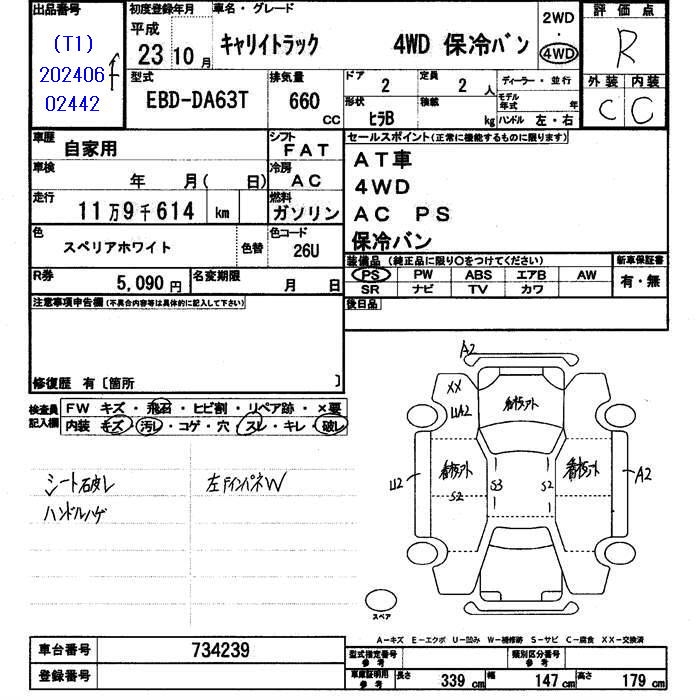 出品番号
(T1)
202406
02442
初度登録年月
平成
23 10 月
車名・グレード
キャリイトラック 4WD 保冷バン
2WD
・
4WD
評価点
R
型式
EBD-DA63T
排気量
660
CC
ドア
2
定員
2 人
ディーラー・並行
モデル年式 年
外装 内装
C C
形状
ヒラB
積載
kg
ハンドル 左・右
車歴
自家用
シフト
FAT
セールスポイント(正常に機能するものに限ります)
AT車
4WD
AC PS
保冷バン
車検
年 月( 日)
冷房
AC
走行
11万9千614 km
燃料
ガソリン
色
スペリアホワイト
色替
色コード
26U
装備品(純正品に限り○をつけてください)
新車保証書
PS PW ABS エアB AW
SR ナビ TV カワ
有・無
R券
5,090 円
名変期限
月 日
後日品
注意事項申告欄(不具合内容等は具体的に記入して下さい)
修復歴 有〔箇所 〕
検査員記入欄
FW キズ・飛石・ヒビ割・リペア跡・×要
内装 キズ・汚レ・コゲ・穴・スレ・キレ・破レ
シート破レ
ハンドルハゲ
左インパネW
A2
XX
U2
S2
S3
S2
A2
スペア
A-キズ E-エクボ U-凹み W-補修跡 S-サビ C-腐食 XX-交換済
車台番号
734239
登録番号
型式指定番号
参考
類別区分番号
参考
車庫証明用
参考
長さ 339 cm 幅 147 cm 高さ 179 cm